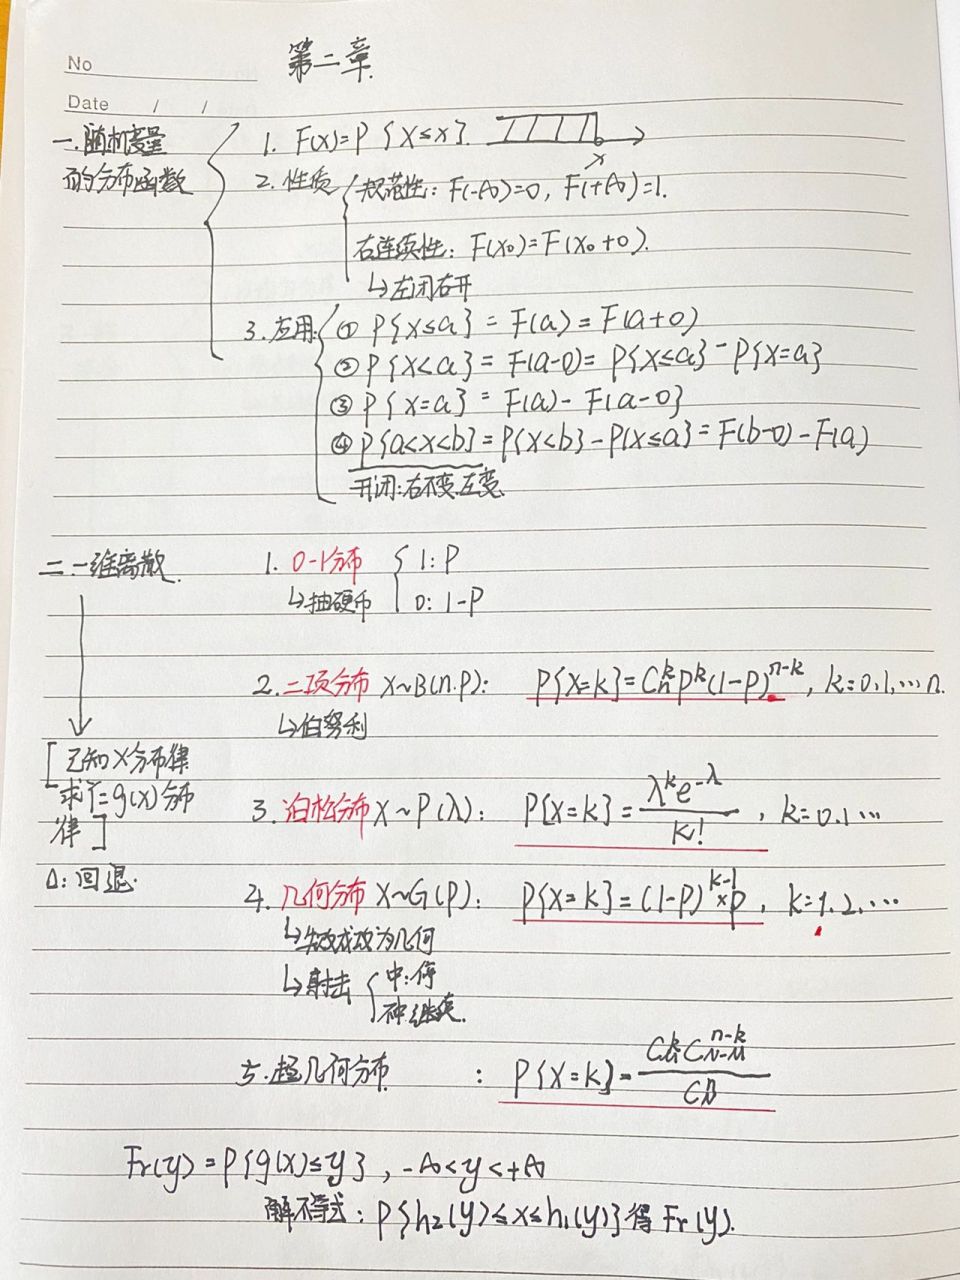 No
第二章.
Date / /
一.随机变量
的分布函数
1. F(x)=P{X≤x}.
x
2. 性质
规范性: F(-∞)=0, F(+∞)=1.
右连续性: F(x₀)=F(x₀+0).
↳左闭右开
3. 应用
① P{X≤a} = F(a) = F(a+0)
② P{X<a} = F(a-0) = P{X≤a} - P{X=a}
③ P{X=a} = F(a) - F(a-0}
④ P{a<X<b} = P{X<b} - P{X≤a} = F(b-0) - F(a)
开闭:右不变.左变.
二.一维离散.
1. 0-1分布
1: P
↳抽硬币
0: 1-P
2. 二项分布 X~B(n.P): P{X=k}=Cₙᵏ Pᵏ(1-P)ⁿ⁻ᵏ, k=0,1,…n.
↳伯努利
[已知X分布律
求Y=g(X)分布
律]
3. 泊松分布 X~P(λ): P{X=k} = λᵏe^-λ / k!, k=0.1…
Δ:回退.
4. 几何分布 X~G(P): P{X=k} = (1-P)ᵏ⁻¹×P, k=1.2.…
↳失败成功为几何
↳射击
中:停
不中:继续.
5.超几何分布 : P{X=k} = C_M^k C_{N-M}^{n-k} / C_N^n
F_Y(y) = P{g(X)≤y}, -∞<y<+∞
解不等式: P{h₂(y)≤X≤h₁(y)} 得 F_Y(y).